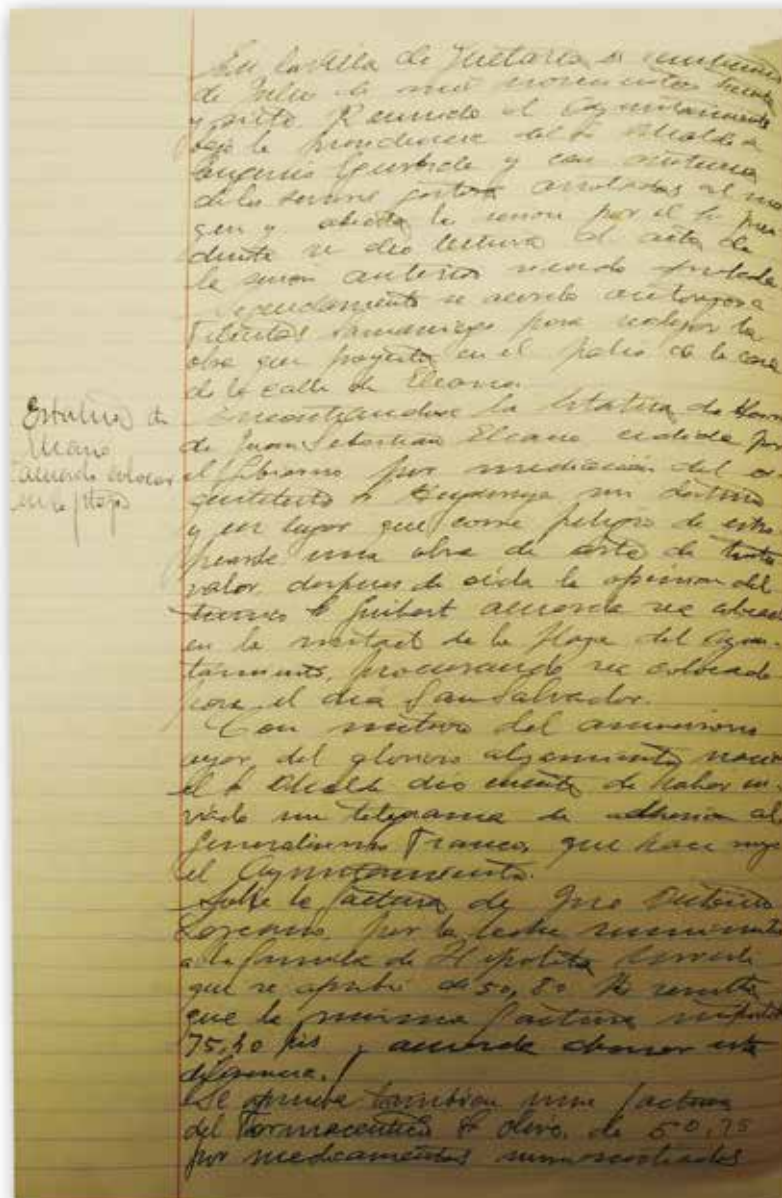 En la Villa de Guetaria a veintiuno
de Julio de mil novecientos treinta
y siete. Reunido el Ayuntamiento
bajo la presidencia del Sr Alcalde
Eugenio y con asistencia
de los señores gestores anotados al mar
gen y abierta la sesion por el Sr Presi
dente se dio lectura al acta de
la sesion anterior siendo aprobada
Seguidamente se acordo autorizar a
Samaniego para
obra que proyecta en el patio de la casa
de la calle de Elcano.
Estatua de
Elcano
acuerdo colocar
en la plaza
Encontrandose la Estatua de
de Juan Sebastian Elcano cedida por
el Gobierno por mediación del
y en lugar que corre peligro de estro
pearse una obra de arte de tanto
valor, despues de oida la opinion del
tecnico Sr Guibert acuerda sea
en la mitad de la plaza del Ayun-
tamiento, procurando sea colocada
para el dia San Salvador.
Con motivo del aniversario
ayer, del glorioso alzamiento
el Sr Alcalde dio cuenta de haber en-
viado un telegrama de adhesion al
Generalisimo Franco, que hace suyo
el Ayuntamiento.
Sobre la factura de
por la leche
a la familia de Hipolito
que se aprobó de 50,80 resulta
que la misma factura importa
75,40 pts acuerda abonar esta
diferencia.
Se aprueba tambien una factura
del Farmaceutico Sr de 50,75
por medicamentos suministrados